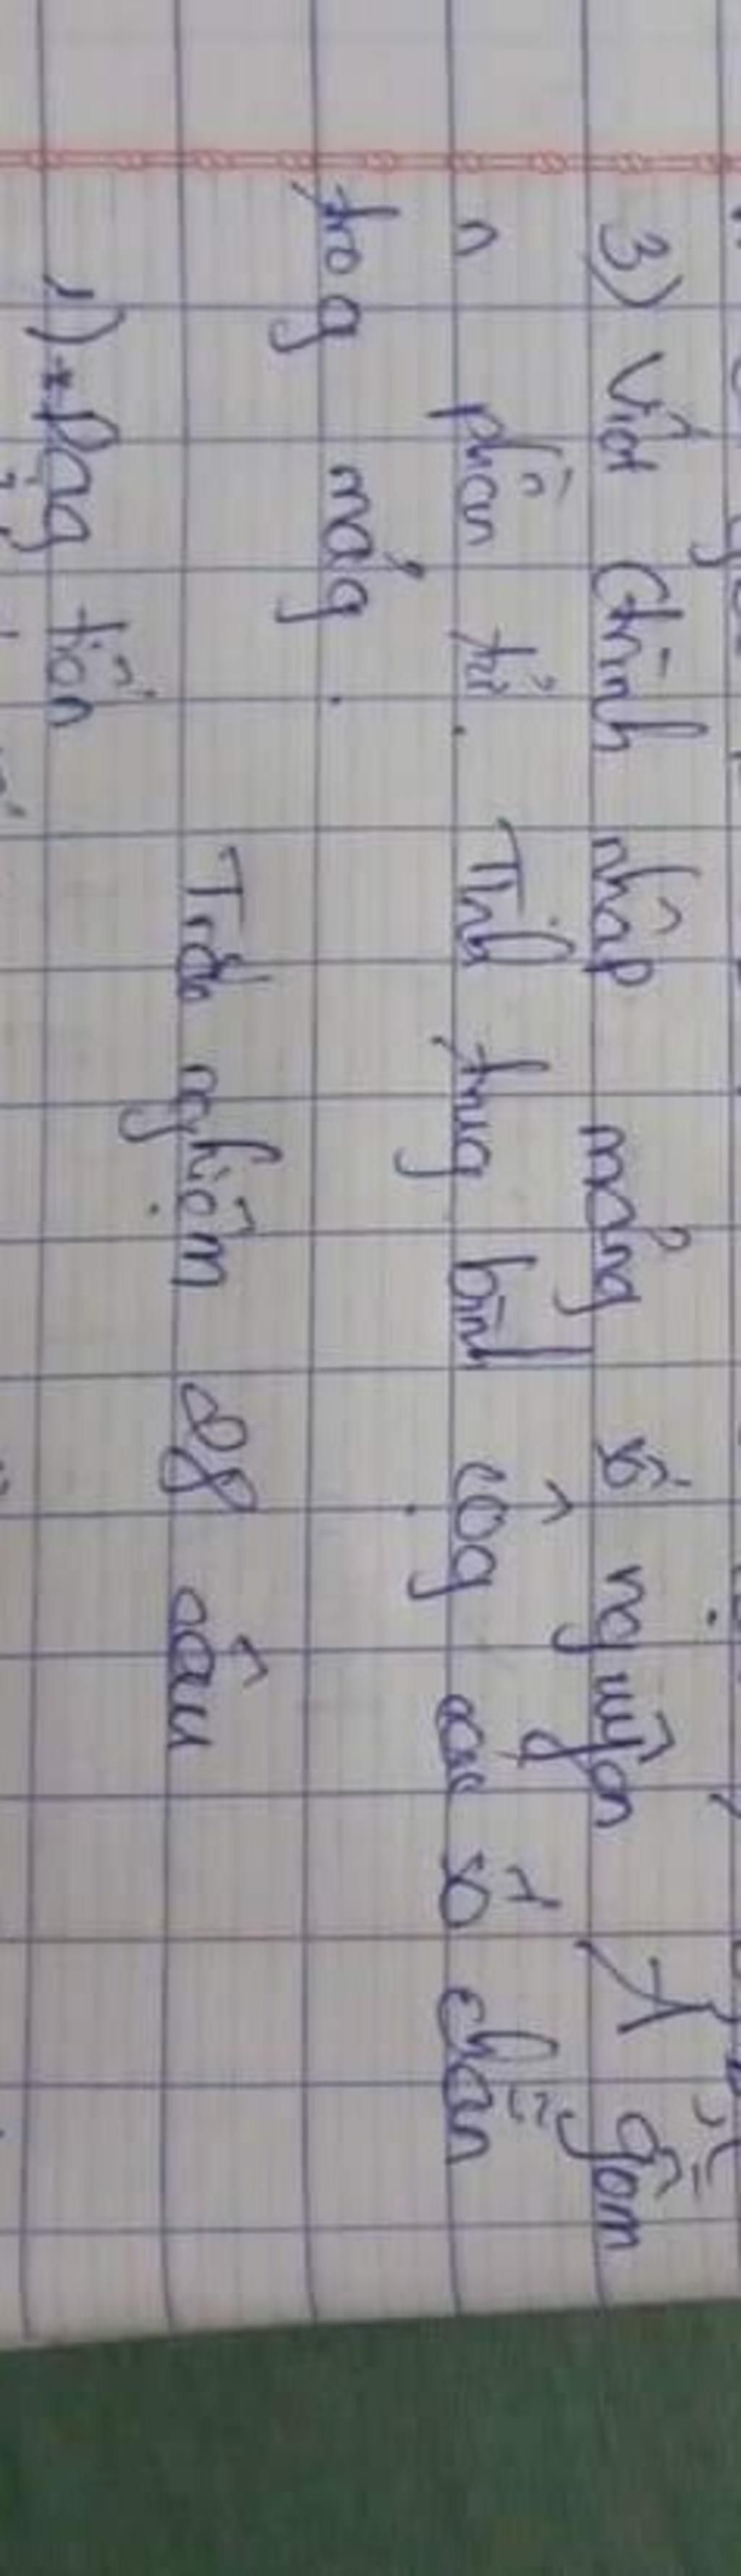 3) Viết ctrình nhập mảng số nguyên A gồm
n phần tử. Tính trug bình cộg các số chẵn
trog mảg.
Trắc nghiệm 28 câu
1) *Dạg tiền